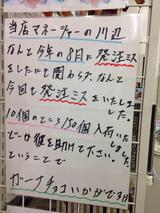 当店マネージャーの川辺
なんと今年の8月に発注ミス
をしたにも関わらず、なんと
今回も発注ミスをいたしま
した。
10個のところ150個入荷いた
しました。
どーか彼を助けて下さい。
ということで
ガーナチョコいかがですか